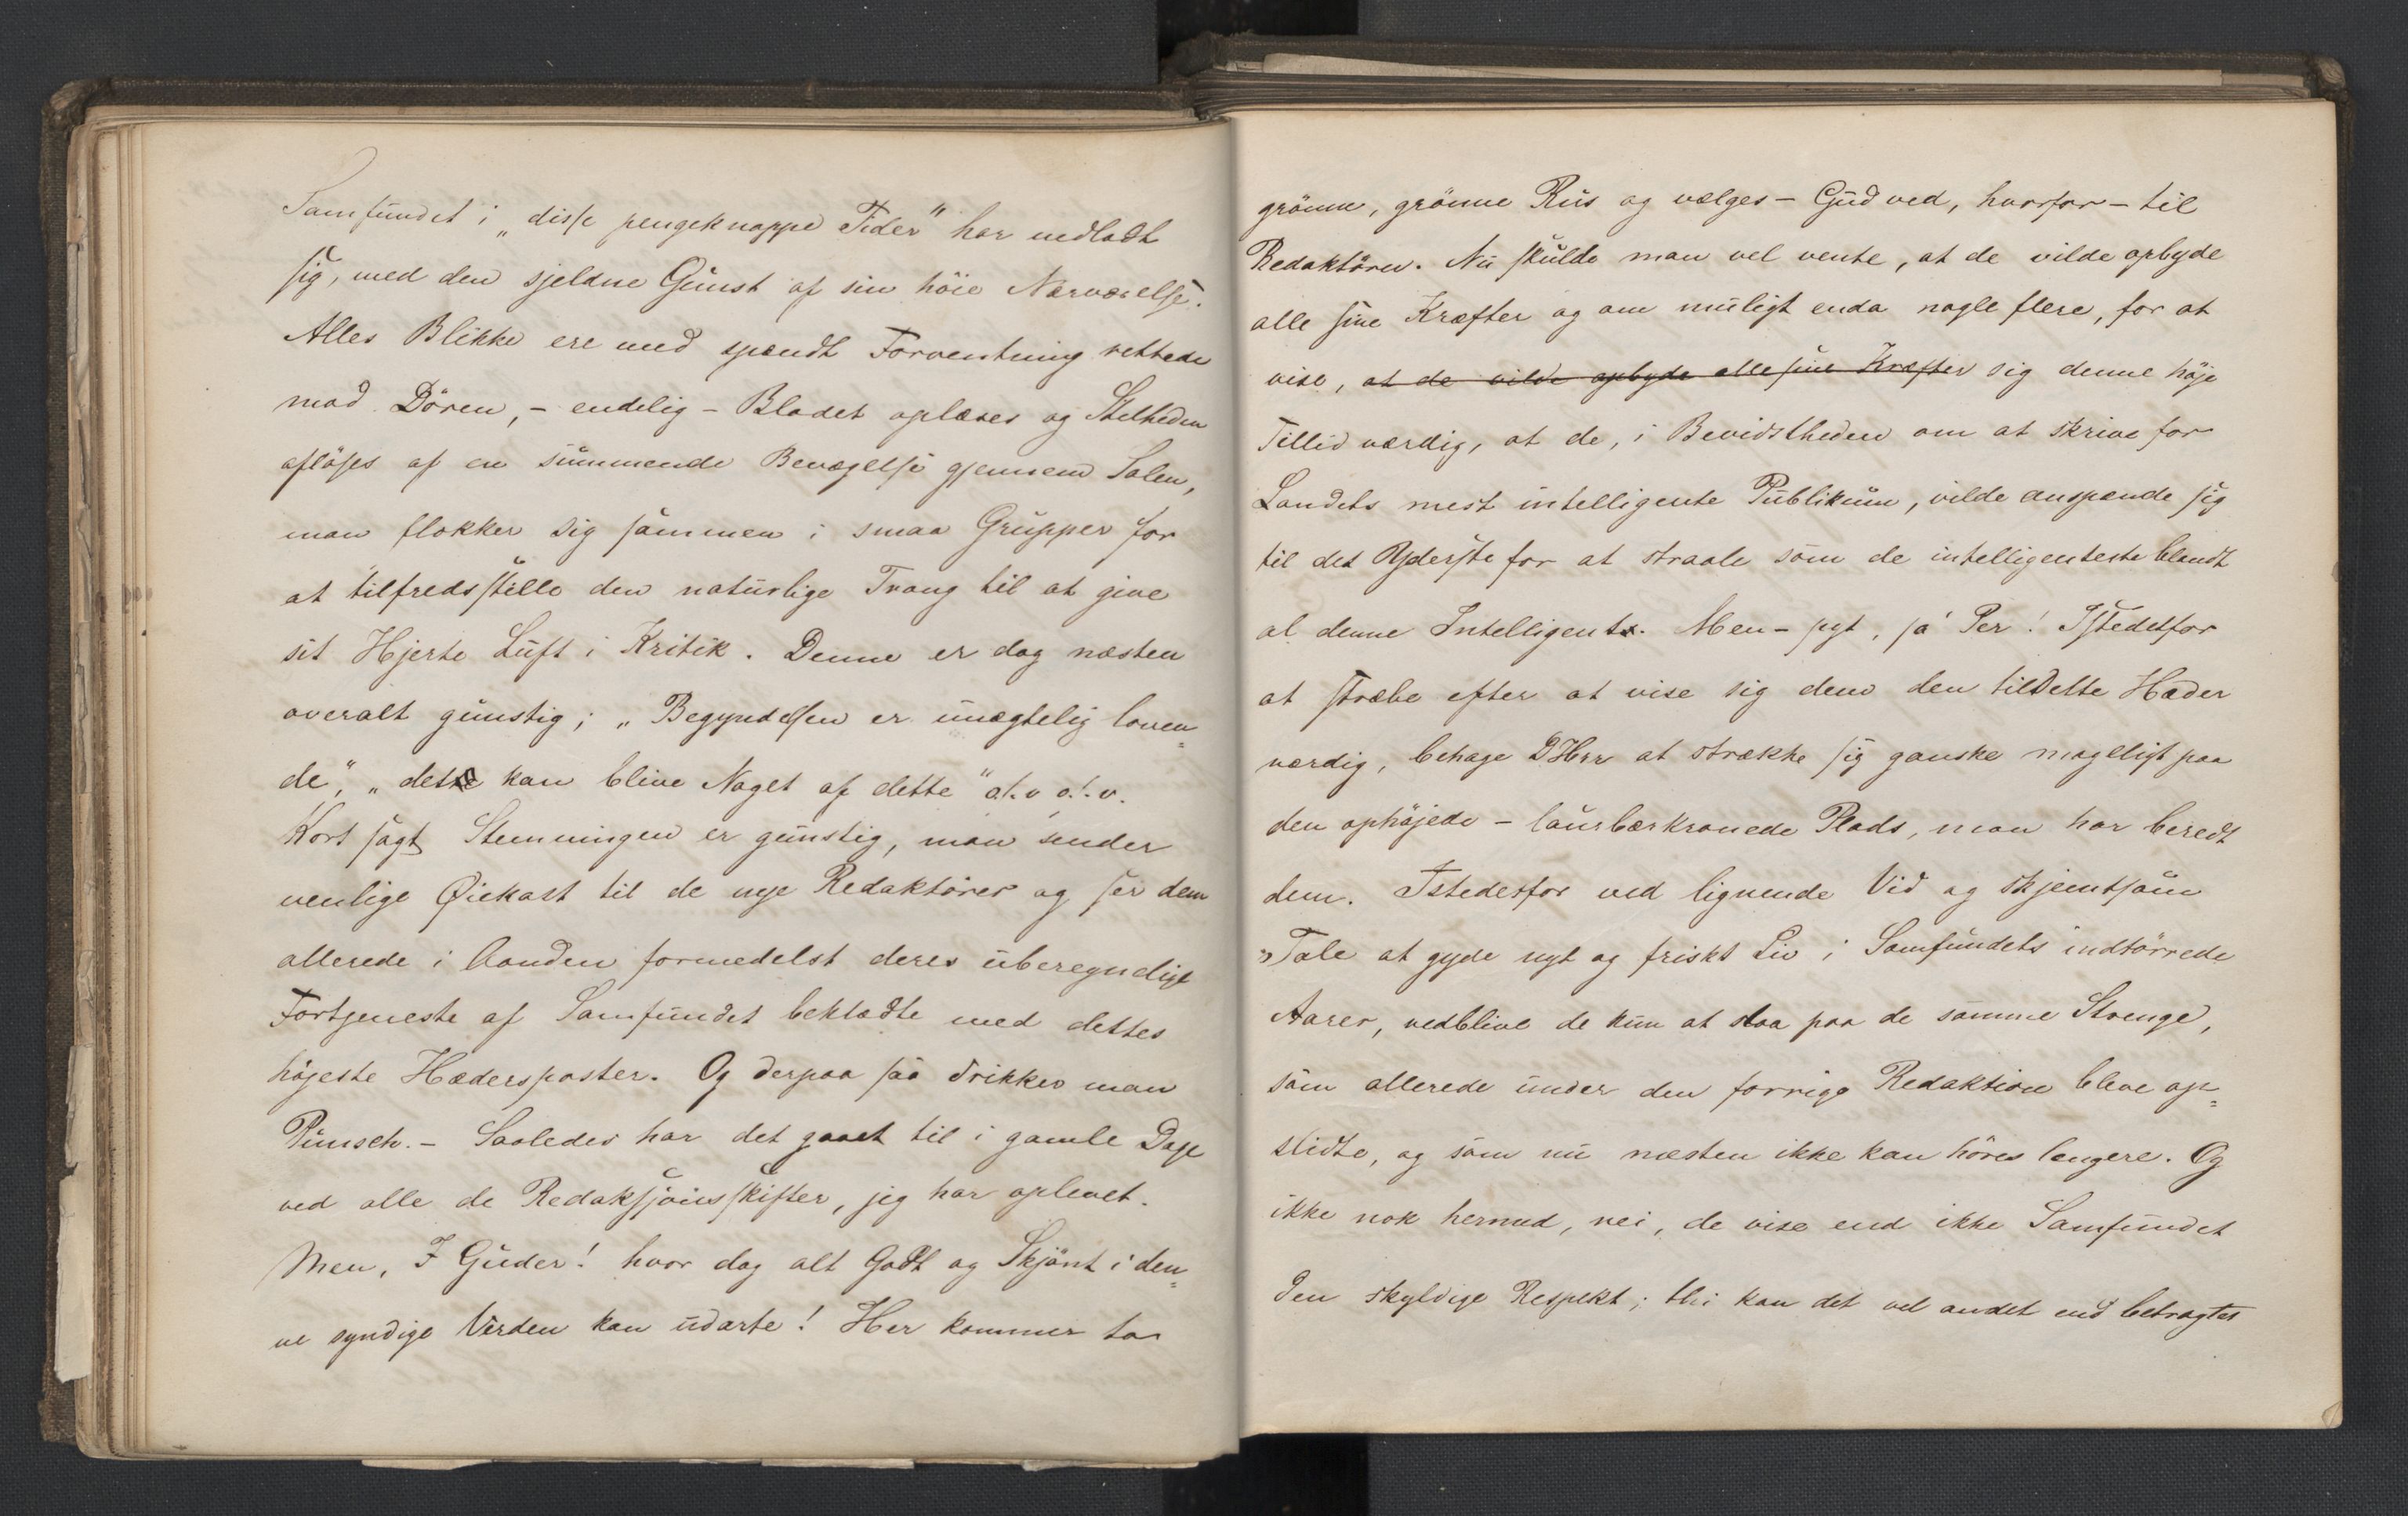 Samfundet i „disse pengeknappe Tider“ har nedladt
sig, med den sjeldne Gunst af sin höie Nærværelse.
Alles Blikke ere med spændt Forventning rettede
mod Dören, – endelig – Bladet oplæses og Stilheden
aflöses af en summende Bevægelse gjennem Salen,
man flokker sig sammen i smaa Grupper for
at tilfredsstille den naturlige Trang til at give
sit Hjerte Luft i Kritik. Denne er dog næsten
overalt gunstig; „Begyndelsen er unægtelig loven=
de“, „det kan blive Noget af dette“ o.s.v o.s.v.
Kort sagt Stemningen er gunstig, man sender
venlige Öiekast til de nye Redaktörer og ser dem
allerede i Aanden formedelst deres uberegnelige
Fortjeneste af Samfundet beklædte med dettes
höjeste Hædersposter. Og derpaa saa drikker man
Punsch. – Saaledes har det gaaet til i gamle Dage
ved alle de Redaksjonsskifter, jeg har oplevet.
Men, I Guder! hvor dog alt Godt og Skjönt i den=
ne syndige Verden kan udarte! Her kommer to
grönne, grönne Rus og vælges – Gud ved, hvorfor – til
Redaktören. Nu skulde man vel vente, at de vilde opbyde
alle sine Kræfter og om muligt enda nogle flere, for at
vise, at de vilde opbyde alle sine Kræfter sig denne höje
Tillid værdig, at de, i Bevidstheden om at skrive for
Landets mest intelligente Publikum, vilde anspænde sig
til det Yderste for at straale som de intelligenteste blandt
al denne Intelligents. Men – pyt, sa' Per! Istedetfor
at stræbe efter at vise sig dem den tildelte Hæder
værdig, behage DHrr at strække sig ganske mageligt paa
den ophöjede – laurbærkronede Plads, man har beredt
dem. Istedetfor ved lignende Vid og skjemtsom
Tale at gyde nyt og friskt Liv i Samfundets indtörrede
Aarer, vedblive de kun at slaa paa de samme Strenge,
som allerede under den forrige Redaktion bleve op=
slidte, og som nu næsten ikke kan höres længere. Og
ikke nok hermed, nei, de vise end ikke Samfundet
den skyldige Respekt; thi kan det vel andet end betragtes